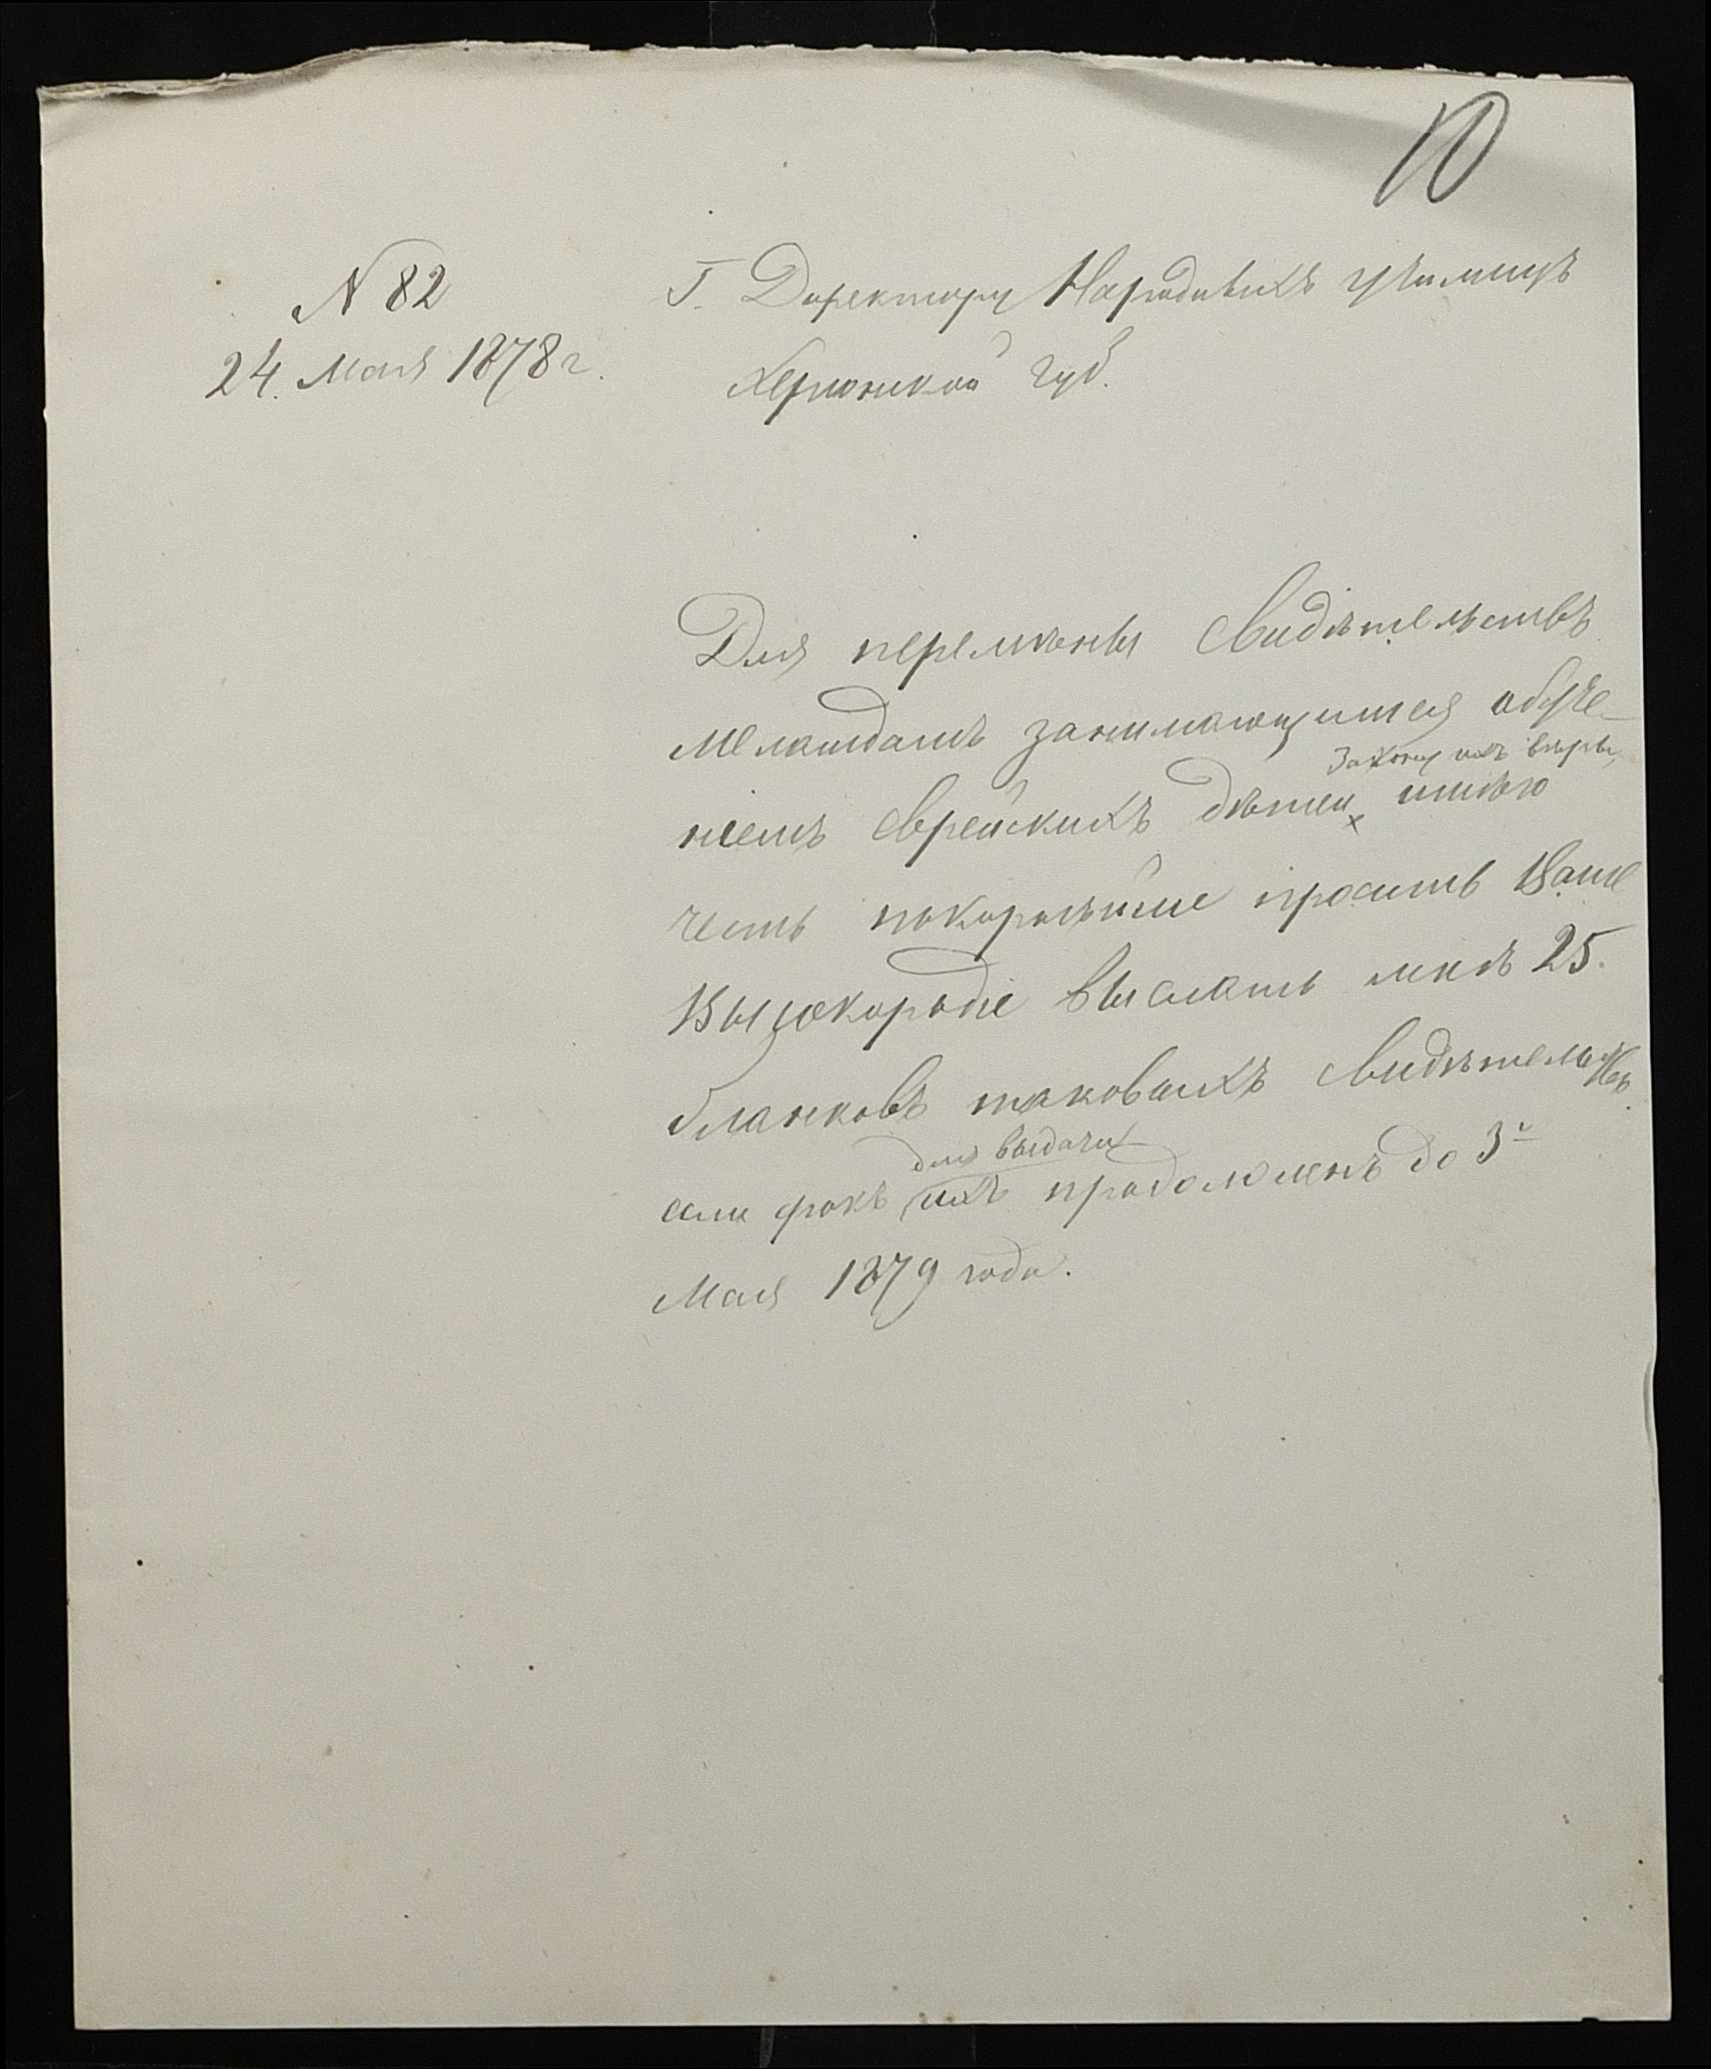 10
N 82
24. Мая 1878 г.
Г. Директору Народныхъ училищъ
Херсонской губ.
Для перемѣны свидѣтельствъ
меламдамъ занимающимся обуче-
ніемъ еврейскихъ дѣтей × имѣю
закону ихъ вѣры,
честь покорнѣйше просить Ваше
Высокородіе выслать мнѣ 25.
бланковъ таковыхъ свидѣтельствъ
если срокъ ихъ продолженъ до 3го
для выдачи
Мая 1879 года.